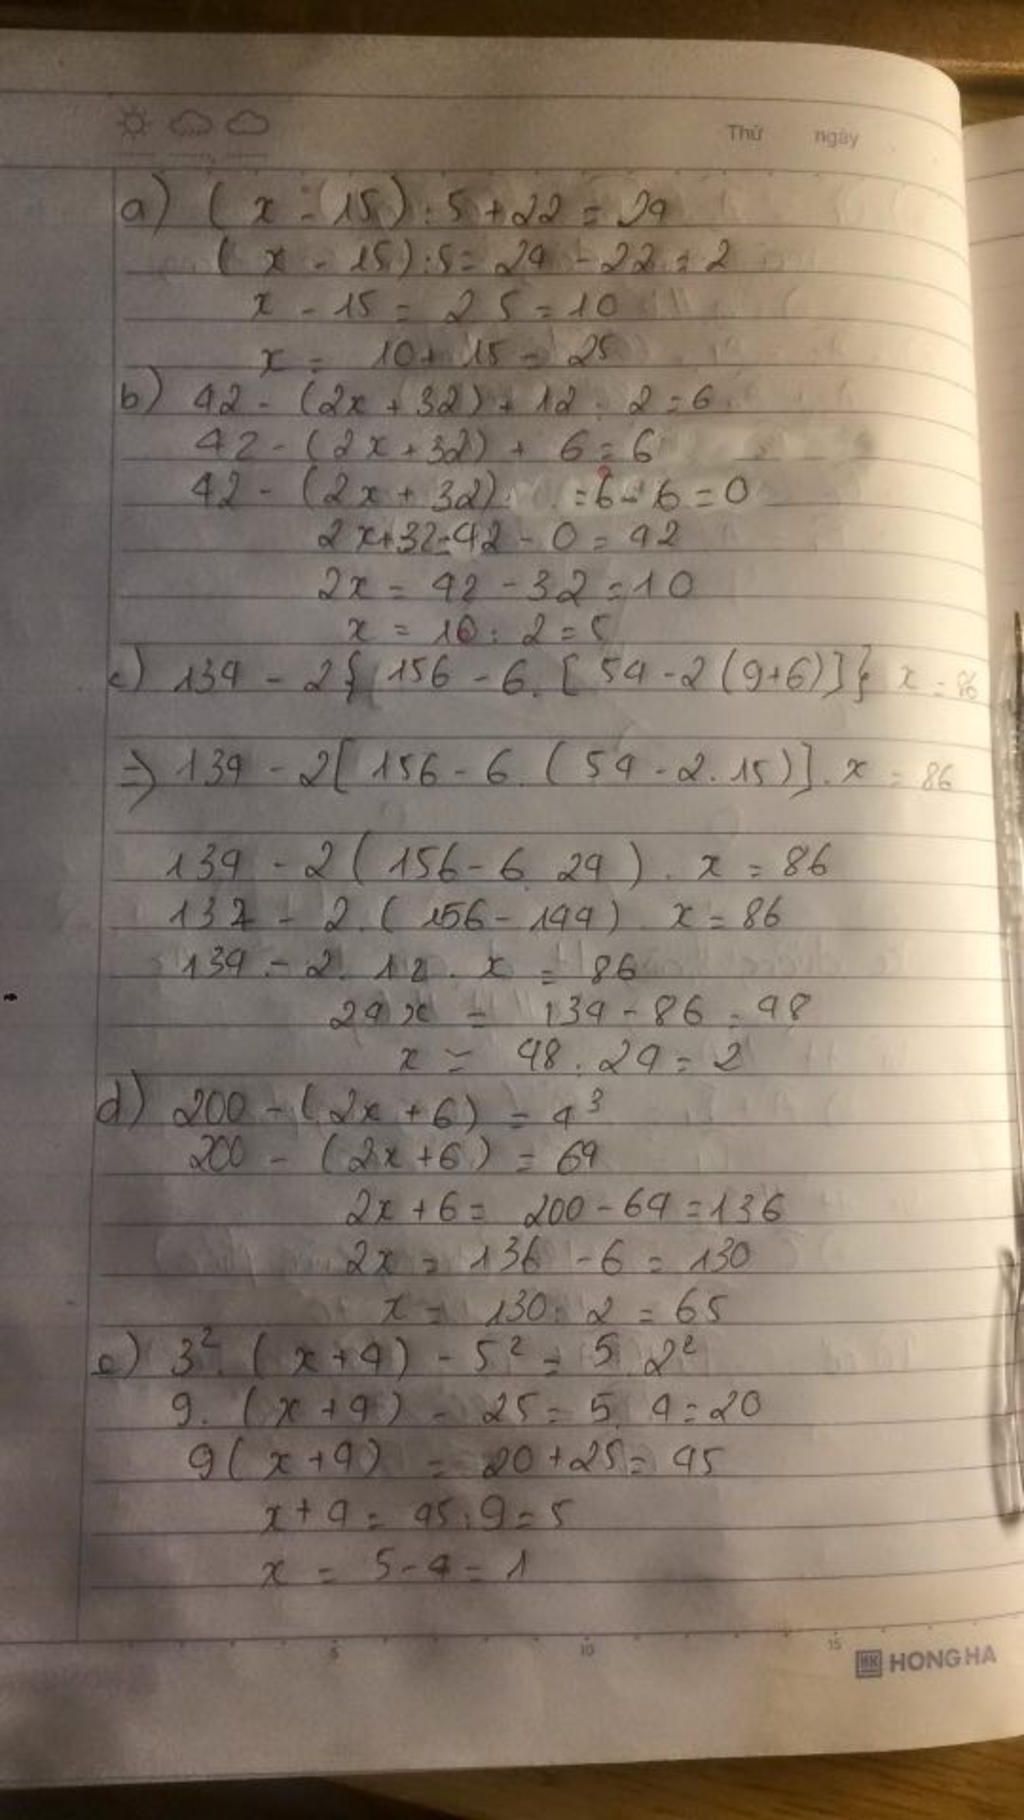 Thứ ngày
a) (x - 15) : 5 + 22 = 24
(x - 15) : 5 = 24 - 22 = 2
x - 15 = 2 . 5 = 10
x = 10 + 15 = 25
b) 42 - (2x + 32) + 12 : 2 = 6
42 - (2x + 32) + 6 = 6
42 - (2x + 32) = 6 - 6 = 0
2x + 32 = 42 - 0 = 42
2x = 42 - 32 = 10
x = 10 : 2 = 5
c) 134 - 2{156 - 6.[54 - 2(9+6)]} x = 86
=> 134 - 2[156 - 6.(54 - 2.15)].x = 86
134 - 2(156 - 6.24).x = 86
134 - 2.(156 - 144).x = 86
134 - 2.12.x = 86
24x = 134 - 86 = 48
x = 48 : 24 = 2
d) 200 - (2x + 6) = 4³
200 - (2x + 6) = 64
2x + 6 = 200 - 64 = 136
2x = 136 - 6 = 130
x = 130 : 2 = 65
e) 3².(x + 4) - 5² = 5.2²
9.(x + 4) - 25 = 5.4 = 20
9(x + 4) = 20 + 25 = 45
x + 4 = 45 : 9 = 5
x = 5 - 4 = 1
5 10 15
HK HONG HA